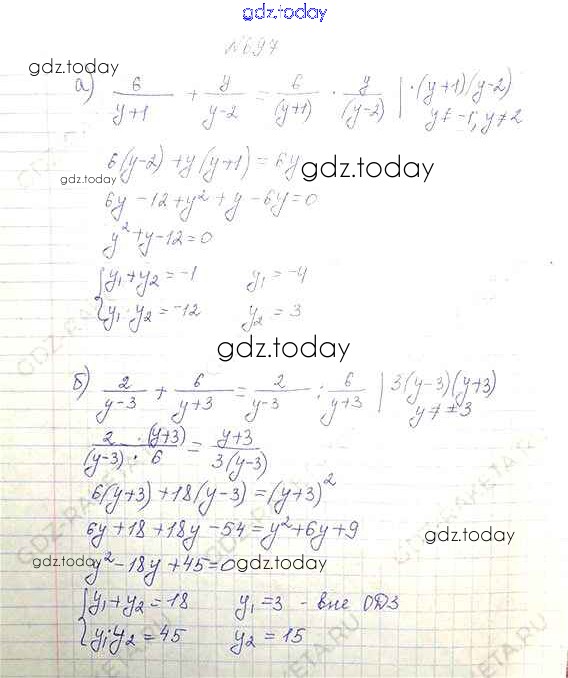 gdz.today
№697
gdz.today
а) 6/(y+1) + y/(y-2) = 6/(y+1) · y/(y-2) | ·(y+1)(y-2)
y≠-1; y≠2
6(y-2)+y(y+1)=6y
gdz.today
gdz.today
6y-12+y²+y-6y=0
y²+y-12=0
{y₁+y₂=-1 y₁=-4
{y₁·y₂=-12 y₂=3
gdz.today
б) 2/(y-3) + 6/(y+3) = 2/(y-3) : 6/(y+3) | 3(y-3)(y+3)
y≠±3
2·(y+3)/(y-3)·6 = (y+3)/3(y-3)
6(y+3)+18(y-3)=(y+3)²
6y+18+18y-54=y²+6y+9
gdz.today
gdz.today
y²-18y+45=0
{y₁+y₂=18 y₁=3 - вне ОДЗ
{y₁·y₂=45 y₂=15
gdz.today
gdz.today